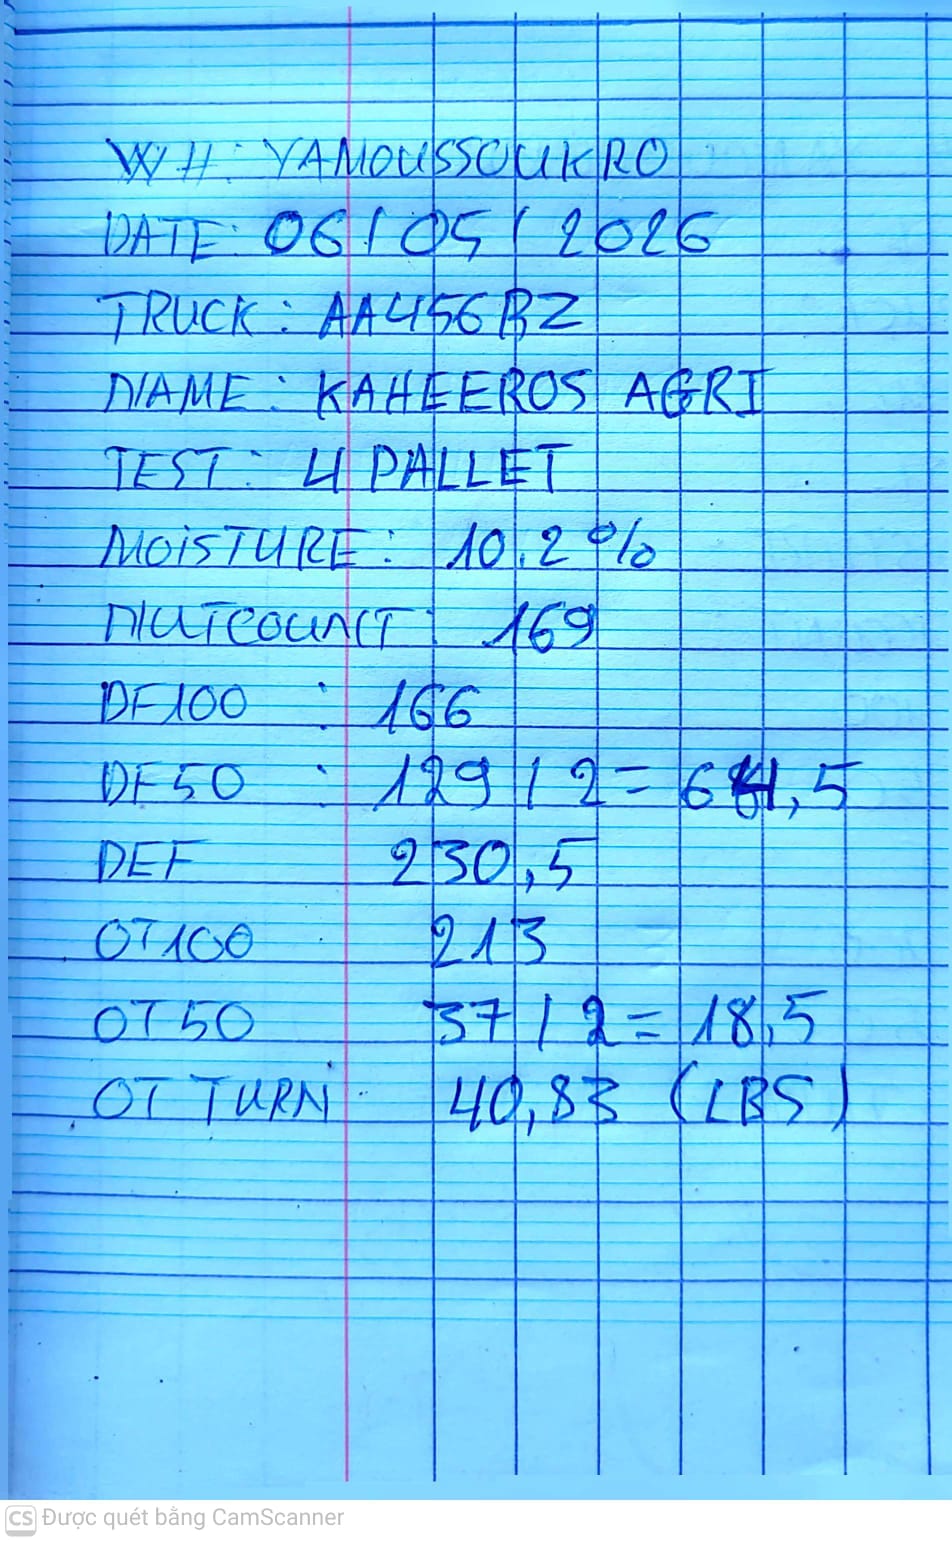 WH: YAMOUSSOUKRO
DATE: 06/05/2026
TRUCK: AA456BZ
NAME: KAHEEROS AGRI
TEST: 4 PALLET
MOISTURE: 10.2%
NUTCOUNT: 169
DF100 : 166
DF50 : 129/2= 64,5
DEF 230,5
OT100 213
OT50 37/2= 18,5
OT TURN 40,83 (LBS)
CS Được quét bằng CamScanner